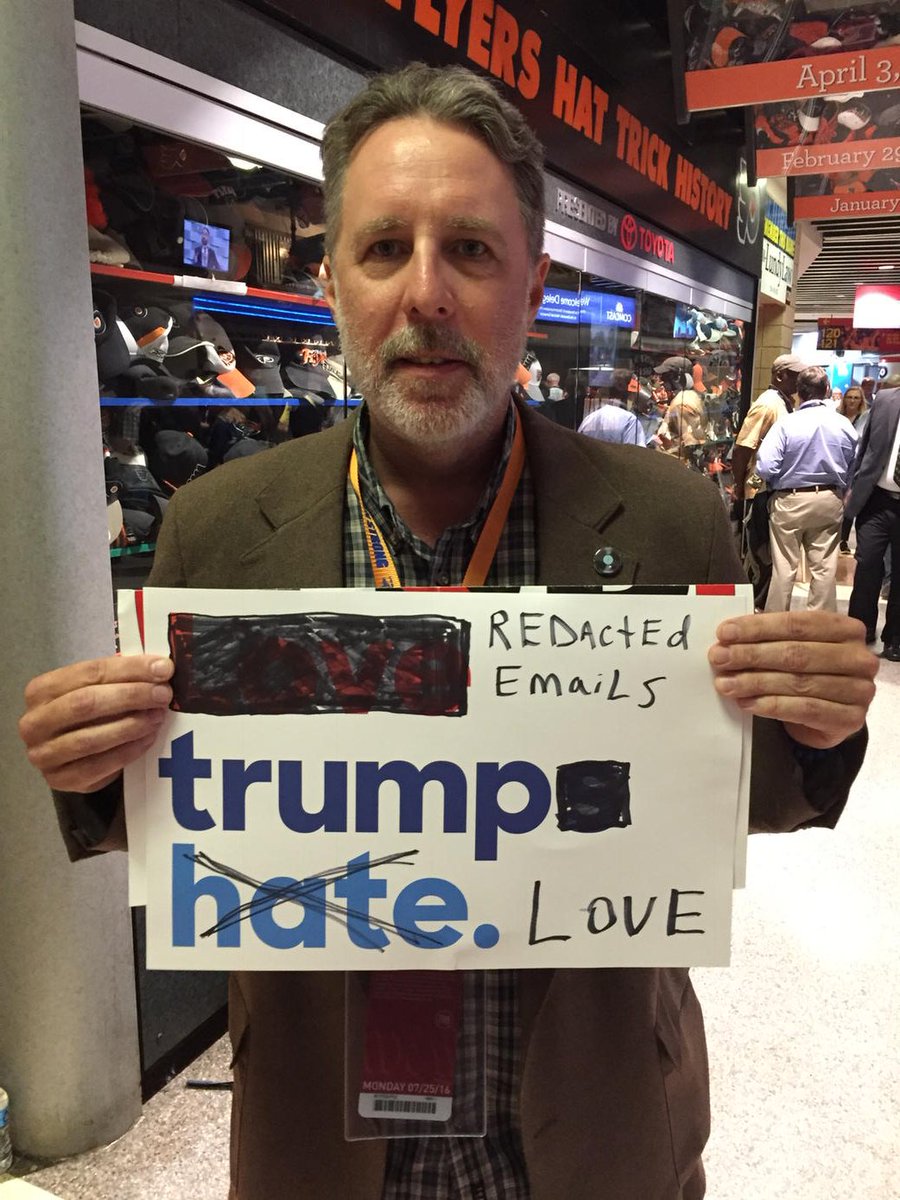 FLYERS HAT TRICK HISTORY
PRESENTED BY TOYOTA
April 3,
February 29
January
Welcome Deleg
COMCAST
120
121
REDActEd
EmaiLs
trump
hate. LOVE
MONDAY 07/25/16